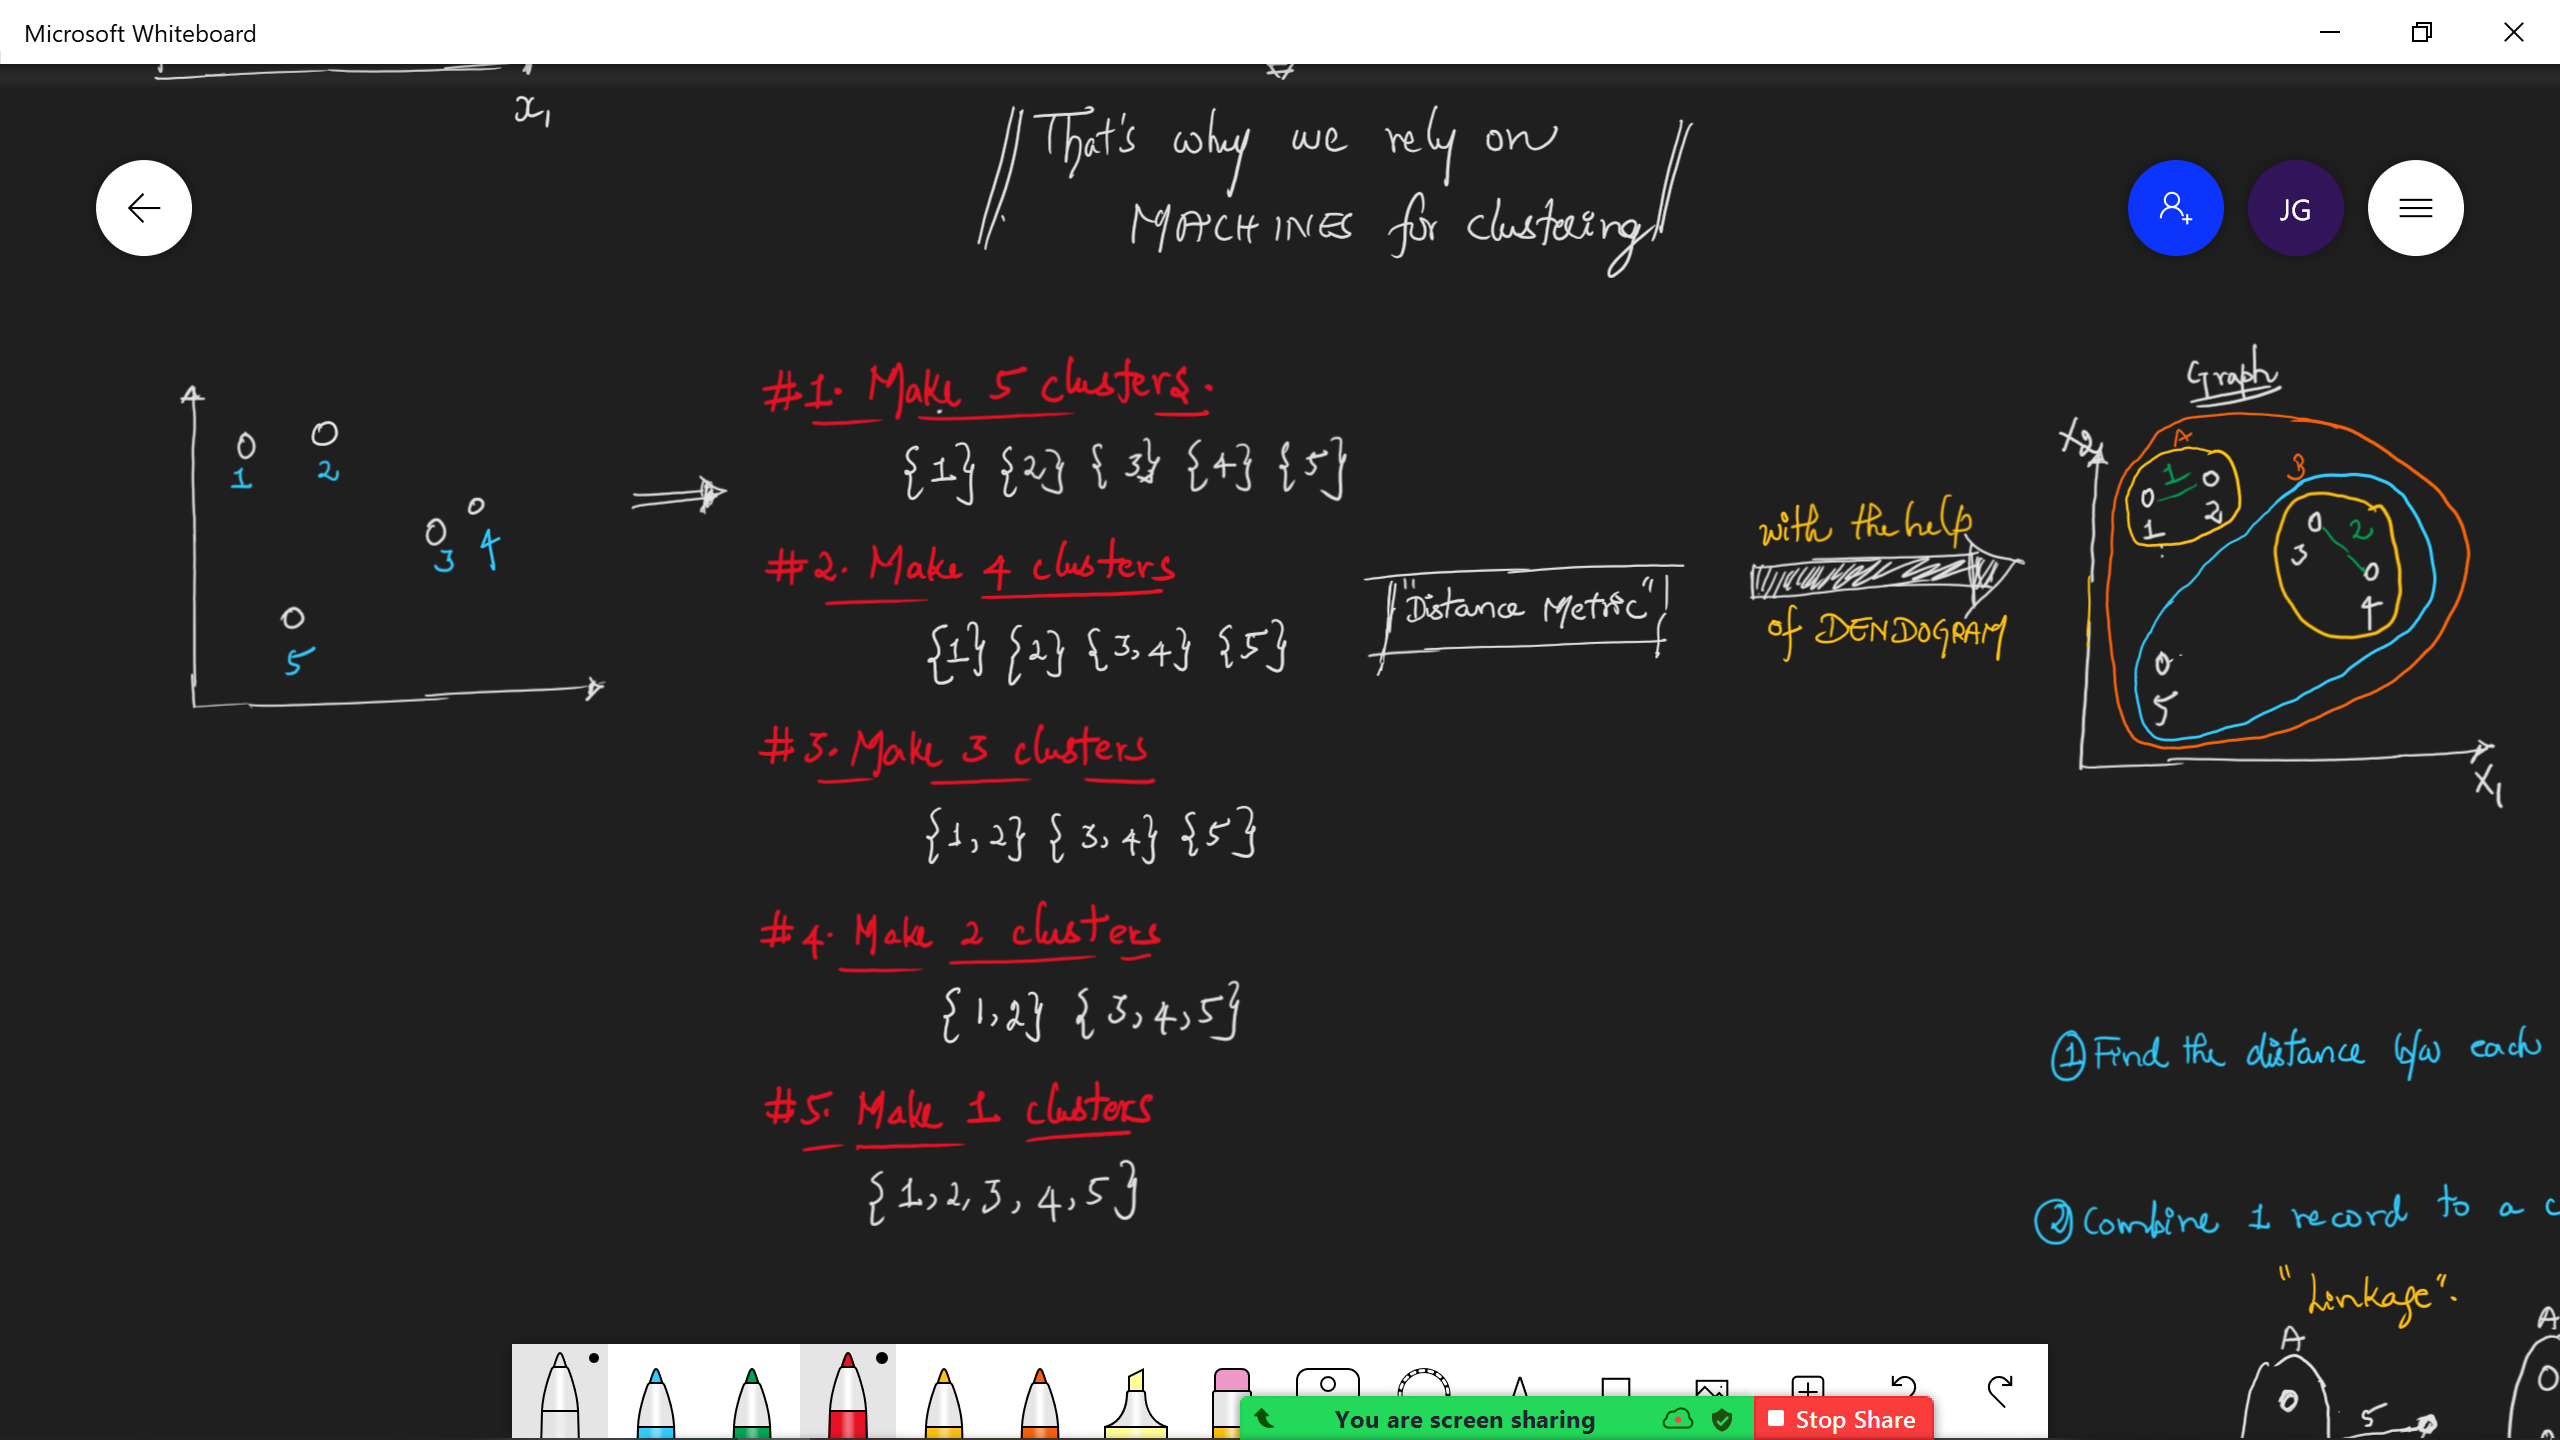 Microsoft Whiteboard
x1
That's why we rely on
MACHINES for clustering
JG
1
2
3
4
5
#1. Make 5 clusters.
{1} {2} {3} {4} {5}
#2. Make 4 clusters
{1} {2} {3,4} {5}
#3. Make 3 clusters
{1,2} {3,4} {5}
#4. Make 2 clusters
{1,2} {3,4,5}
#5. Make 1 clusters
{1,2,3,4,5}
"Distance Metric"
with the help
of DENDOGRAM
Graph
X2
A
B
1
1
2
2
3
4
5
X1
① Find the distance b/w each
② Combine 1 record to a c
"Linkage".
A
A
5
You are screen sharing
Stop Share